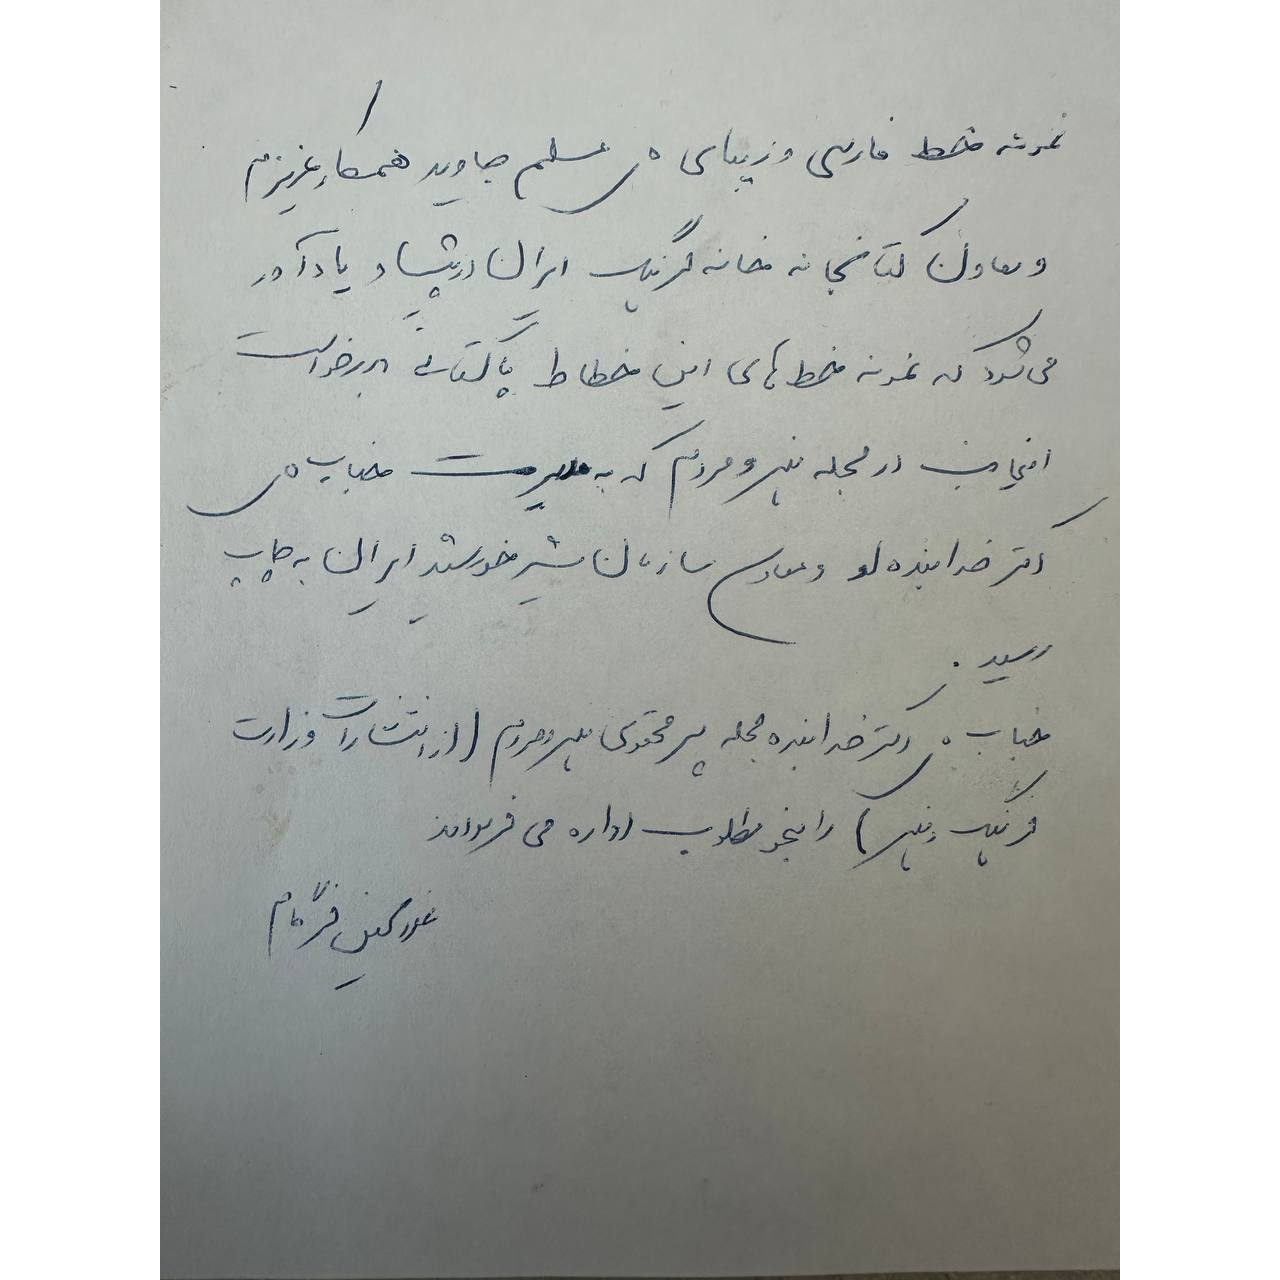 نمونه خط فارسی و زیبای آقای مسلم جاوید همکار عزیزم
و معاون کتابخانه خانه فرهنگ ایران در پیشاور یادآور
می‌شود که نمونه خط‌های این خطاط پاکستانی در خواست
اینجانب در مجله هنر و مردم که به مدیریت جناب آقای
دکتر خدابنده لو و معاون سازمان شیر خورشید ایران به چاپ
رسید.
جناب آقای دکتر خدابنده مجله پر محتوی هنر و مردم (از انتشارات وزارت
فرهنگ و هنر) را بنحو مطلوب اداره می فرمودند